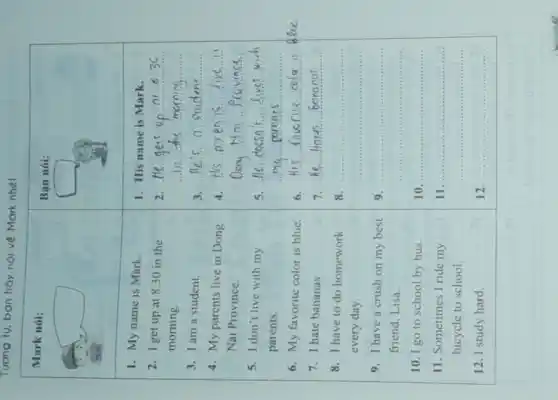 Tương tự, bạn hãy nói về Mark nhé!
Mark nói:
1. My name is Mark.
2. I get up at 8.30 in the
morning.
3. I am a student.
4. My parents live in Dong
Nai Province.
5. I don't live with my
parents.
6. My favorite color is blue.
7. I hate bananas.
8. I have to do homework
every day.
9. I have a crush on my best
friend, Lisa.
10. I go to school by bus.
11. Sometimes I ride my
bicycle to school.
12. I study hard.
Bạn nói:
1. His name is Mark.
2. He gets up at 8 30
in the morning
3. He's a student
4. His parents live in
Dong Nai Province
5. He doesn't lives with
parents
6. His color is blue
7. He hates
8.
9.
10.
11.
12.